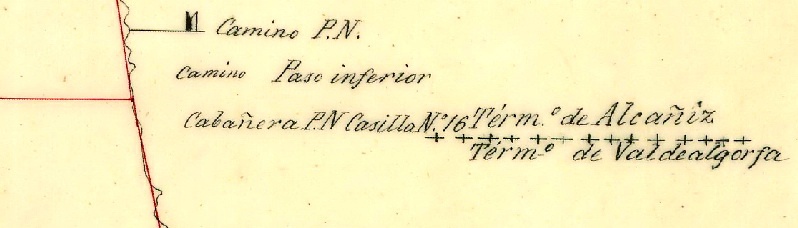 Camino P.N.
Camino Paso inferior
Cabañera P.N Casilla N.º 16 Térm.º de Alcañiz
Térm.º de Valdealgorfa